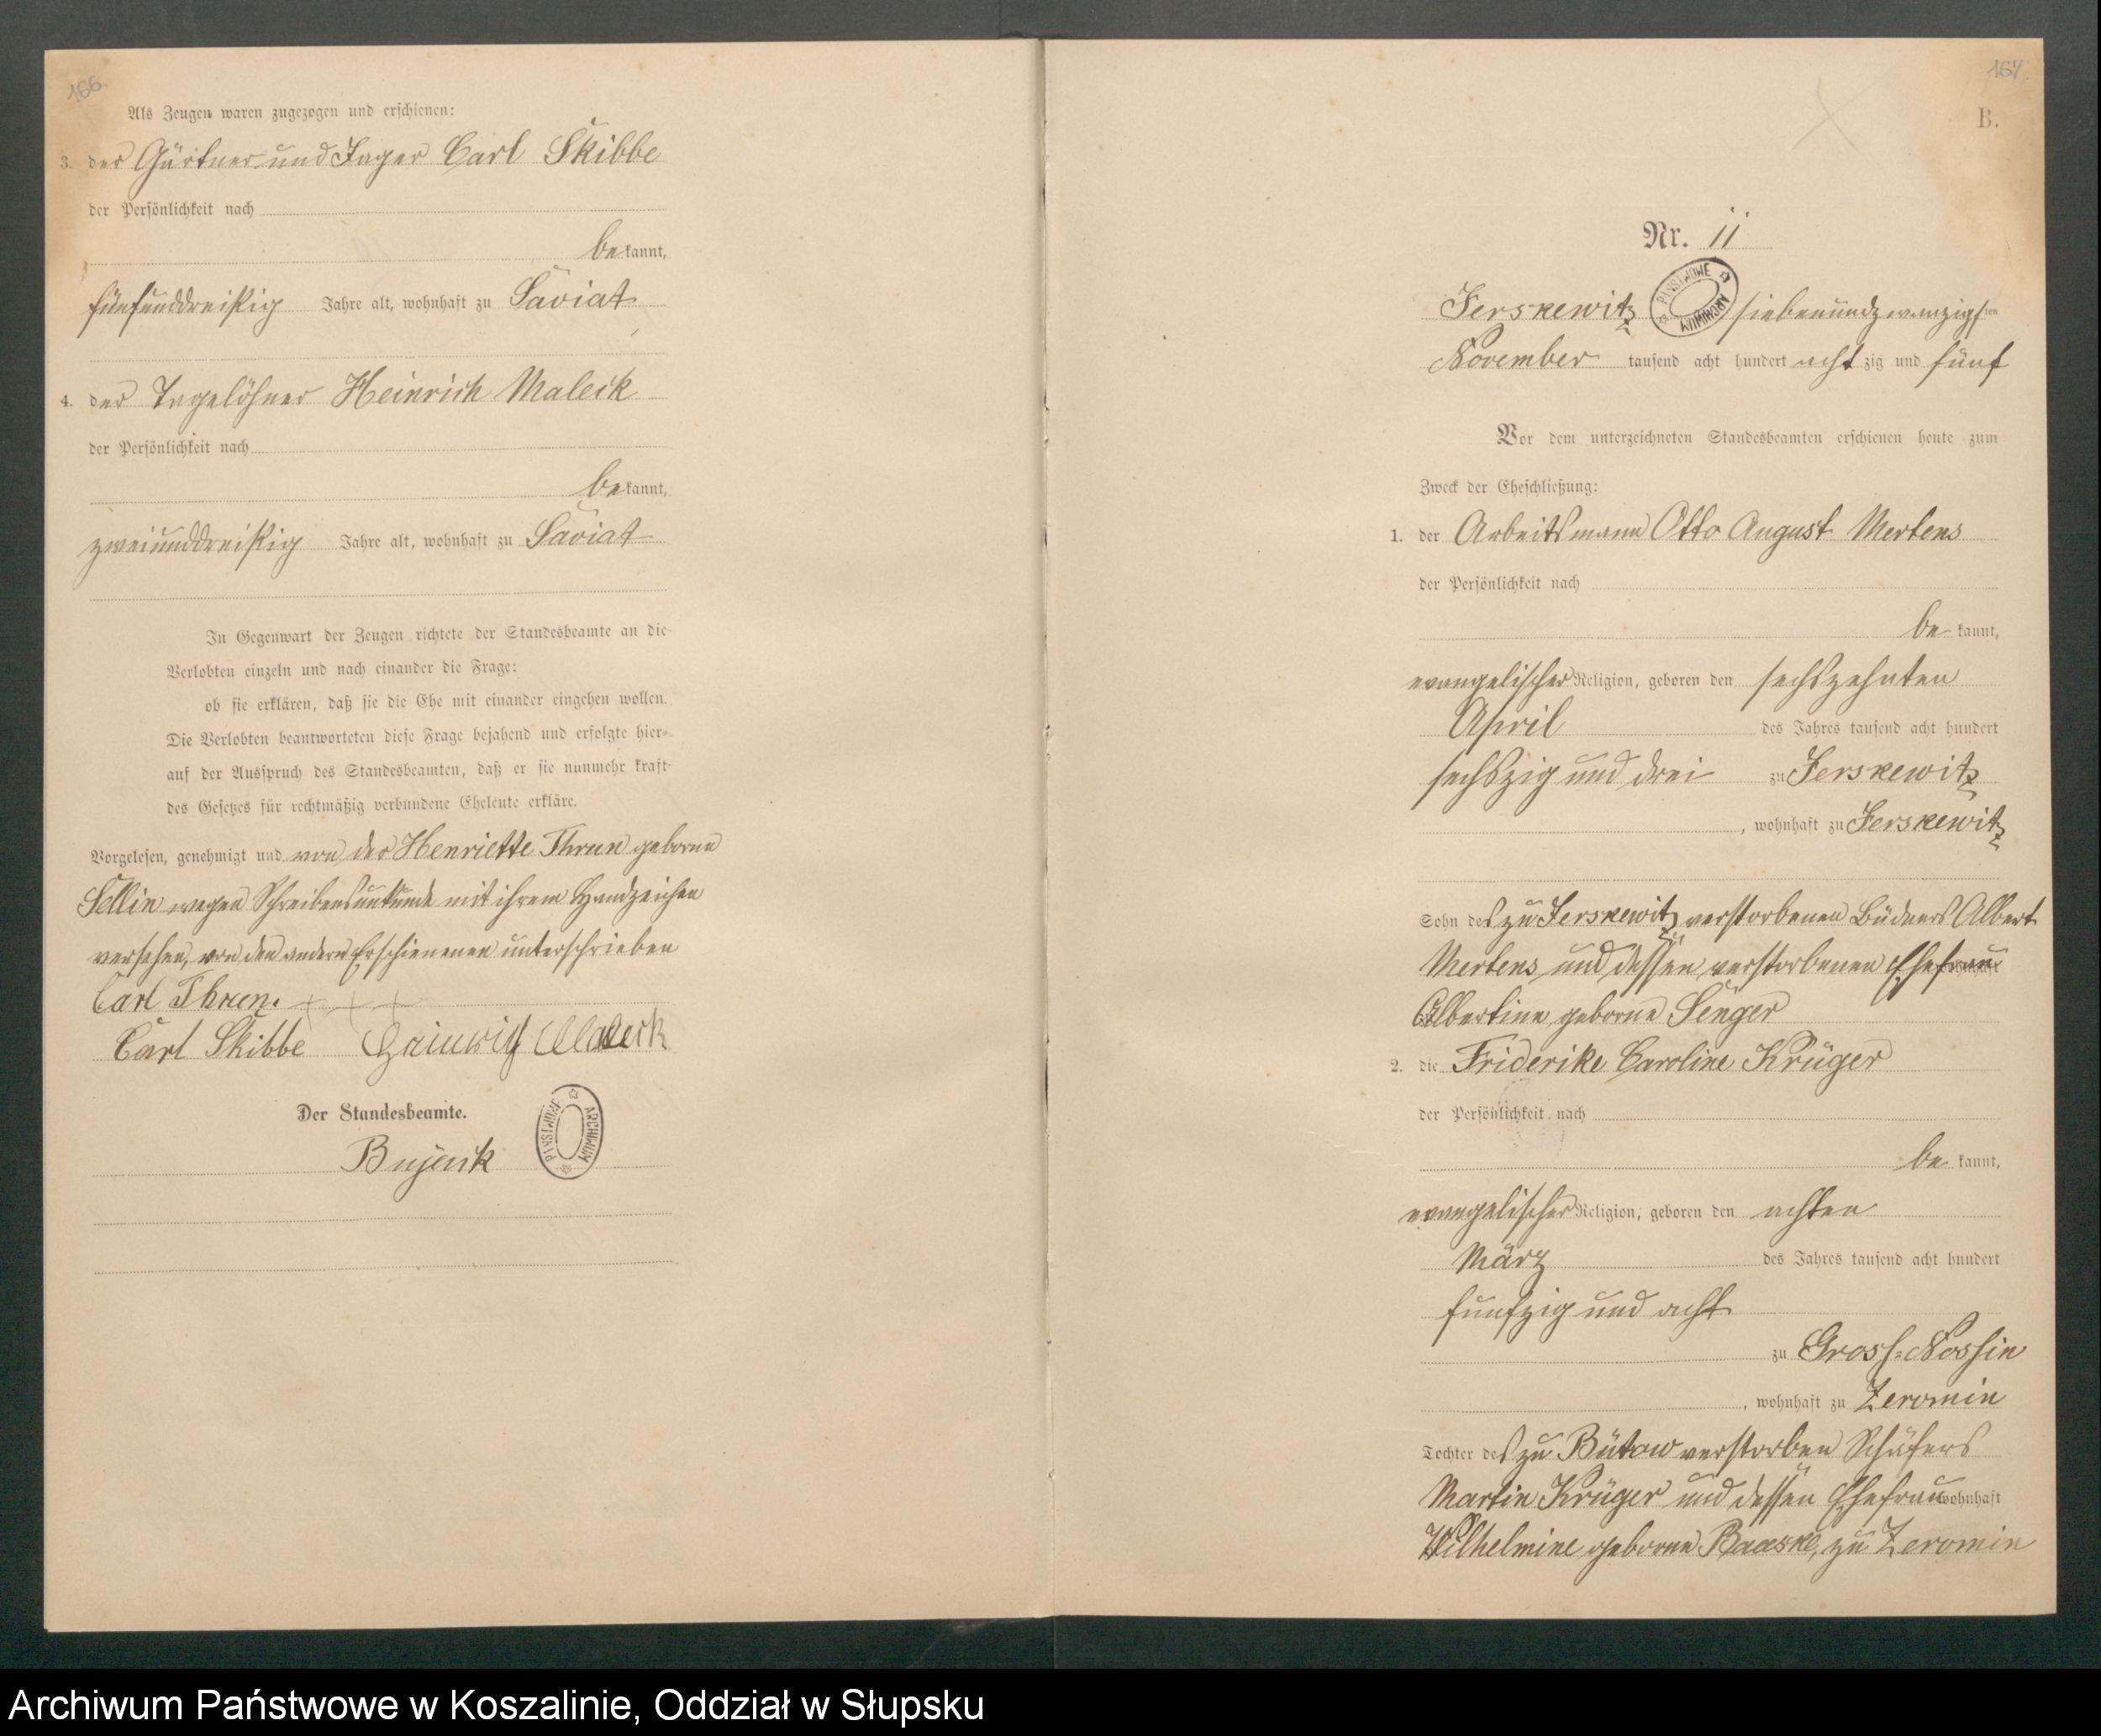 166.
Als Zeugen waren zugezogen und erschienen:
3. der Gärtner und Jager Carl Skibbe
der Persönlichkeit nach
bekannt,
fünfunddreißig Jahre alt, wohnhaft zu Saviat
4. der Tagelöhner Heinrich Maleck
der Persönlichkeit nach
bekannt,
zweiunddreißig Jahre alt, wohnhaft zu Saviat
In Gegenwart der Zeugen richtete der Standesbeamte an die
Verlobten einzeln und nach einander die Frage:
ob sie erklären, daß sie die Ehe mit einander eingehen wollen.
Die Verlobten beantworteten diese Frage bejahend und erfolgte hier-
auf der Ausspruch des Standesbeamten, daß er sie nunmehr kraft
des Gesetzes für rechtmäßig verbundene Eheleute erkläre.
Vorgelesen, genehmigt und von der Henriette Thrun geborne
Sellin wegen Schreibensunkunde mit ihrem Handzeichen
versehen, von den andern Erschienenen unterschrieben
Carl Thrun. + + +
Carl Skibbe Heinrich Maleck
Der Standesbeamte.
PAŃSTWOWE ARCHIWUM
167.
B.
Nr. 11
Jerskewitz siebenundzwanzigsten
PAŃSTWOWE ARCHIWUM
November tausend acht hundert achtzig und fünf
Vor dem unterzeichneten Standesbeamten erschienen heute zum
Zweck der Eheschließung:
1. der Arbeitsmann Otto August Mertens
der Persönlichkeit nach
bekannt,
evangelischer Religion, geboren den sechszehnten
April des Jahres tausend acht hundert
sechszig und drei zu Jerskewitz
, wohnhaft zu Jerskewitz
Sohn des zu Jerskewitz verstorbenen Büdners Albert
Mertens und dessen verstorbenen Ehefrau
Albertine geborne Senger
2. die Friderike Caroline Krüger
der Persönlichkeit nach
bekannt,
evangelischer Religion, geboren den achten
März des Jahres tausend acht hundert
funfzig und acht
zu Gross-Nossin
, wohnhaft zu Zeromin
Tochter des zu Bütow verstorben Schäfers
Martin Krüger und dessen Ehefrau wohnhaft
Wilhelmine geborne Baaske, zu Zeromin
Archiwum Państwowe w Koszalinie, Oddział w Słupsku